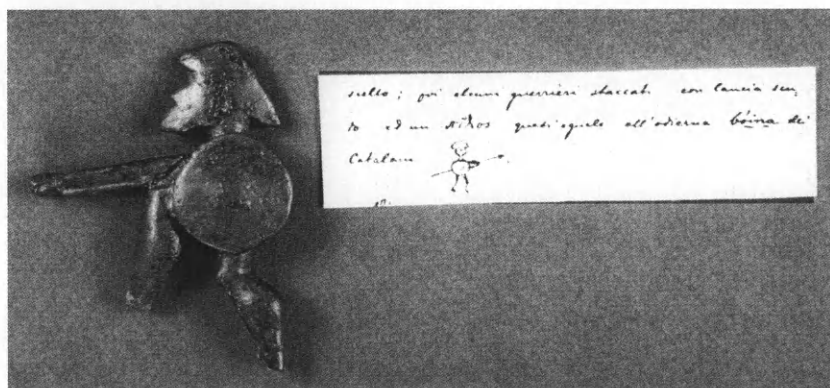 sello; poi alcuni guerrieri staccati con lancia scu-
to ed un πῖλος quasi eguale all'odierna bóina dei
Catalani